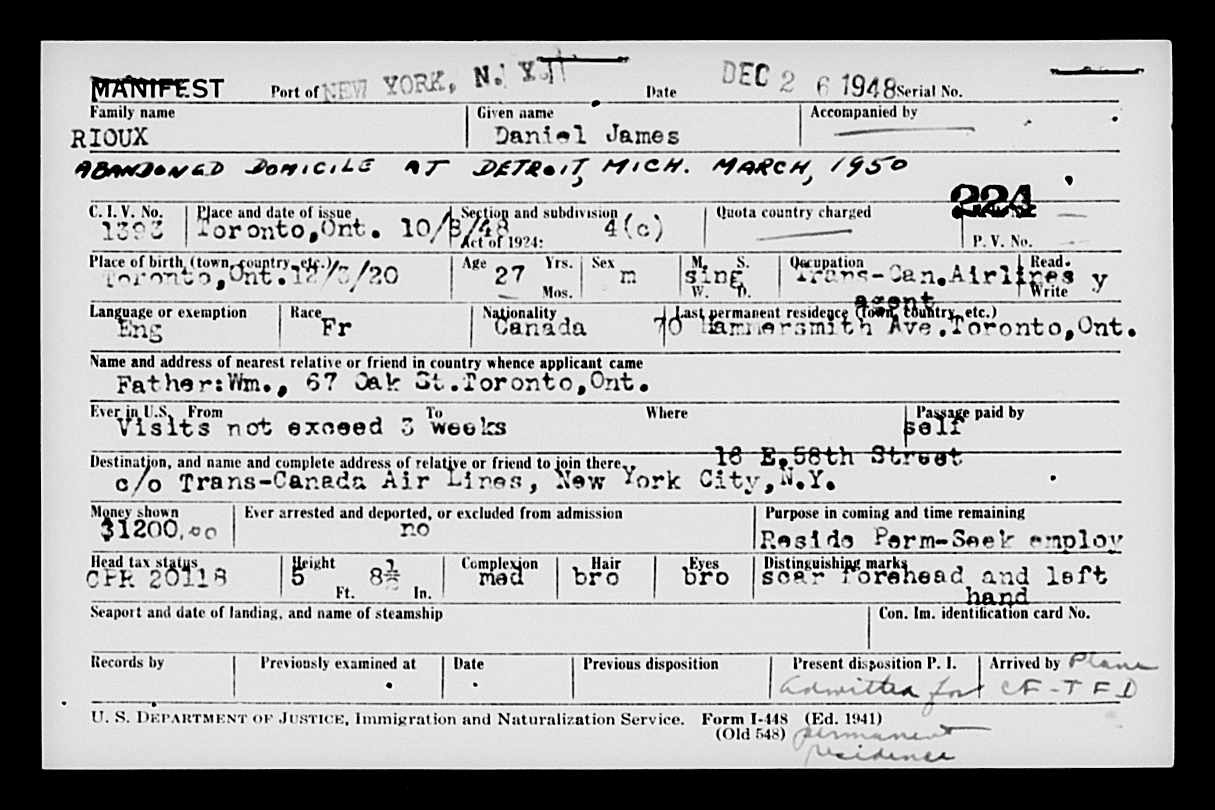 MANIFEST Port of NEW YORK, N. Y. Date DEC 26 1948 Serial No.
Family name Given name Accompanied by
RIOUX Daniel James
ABANDONED DOMICILE AT DETROIT, MICH. MARCH, 1950
224
C. I. V. No. Place and date of issue Section and subdivision Quota country charged
1393 Toronto,Ont. 10/8/48 Act of 1924: 4(c) P. V. No.
Place of birth (town, country, etc.) Age Yrs. Sex M. S. Occupation Read
Toronto,Ont.12/3/20 27 m sing Trans-Can.Airlines y
Mos. W. D. agent Write
Language or exemption Race Nationality Last permanent residence (town, country, etc.)
Eng Fr Canada 70 Hammersmith Ave.Toronto,Ont.
Name and address of nearest relative or friend in country whence applicant came
Father:Wm., 67 Oak St.Toronto,Ont.
Ever in U.S. From To Where Passage paid by
Visits not exceed 3 weeks self
Destination, and name and complete address of relative or friend to join there 18 E.58th Street
c/o Trans-Canada Air Lines, New York City,N.Y.
Money shown Ever arrested and deported, or excluded from admission Purpose in coming and time remaining
$1200.00 no Reside Perm-Seek employ
Head tax status Height Complexion Hair Eyes Distinguishing marks
CPR 20118 5 Ft. 8½ In. med bro bro scar forehead and left
hand
Seaport and date of landing, and name of steamship Con. Im. identification card No.
Records by Previously examined at Date Previous disposition Present disposition P. I. Arrived by Plane
Admitted for CF-TFD
U. S. DEPARTMENT OF JUSTICE, Immigration and Naturalization Service. Form I-448 (Ed. 1941)
(Old 548) permanent
residence